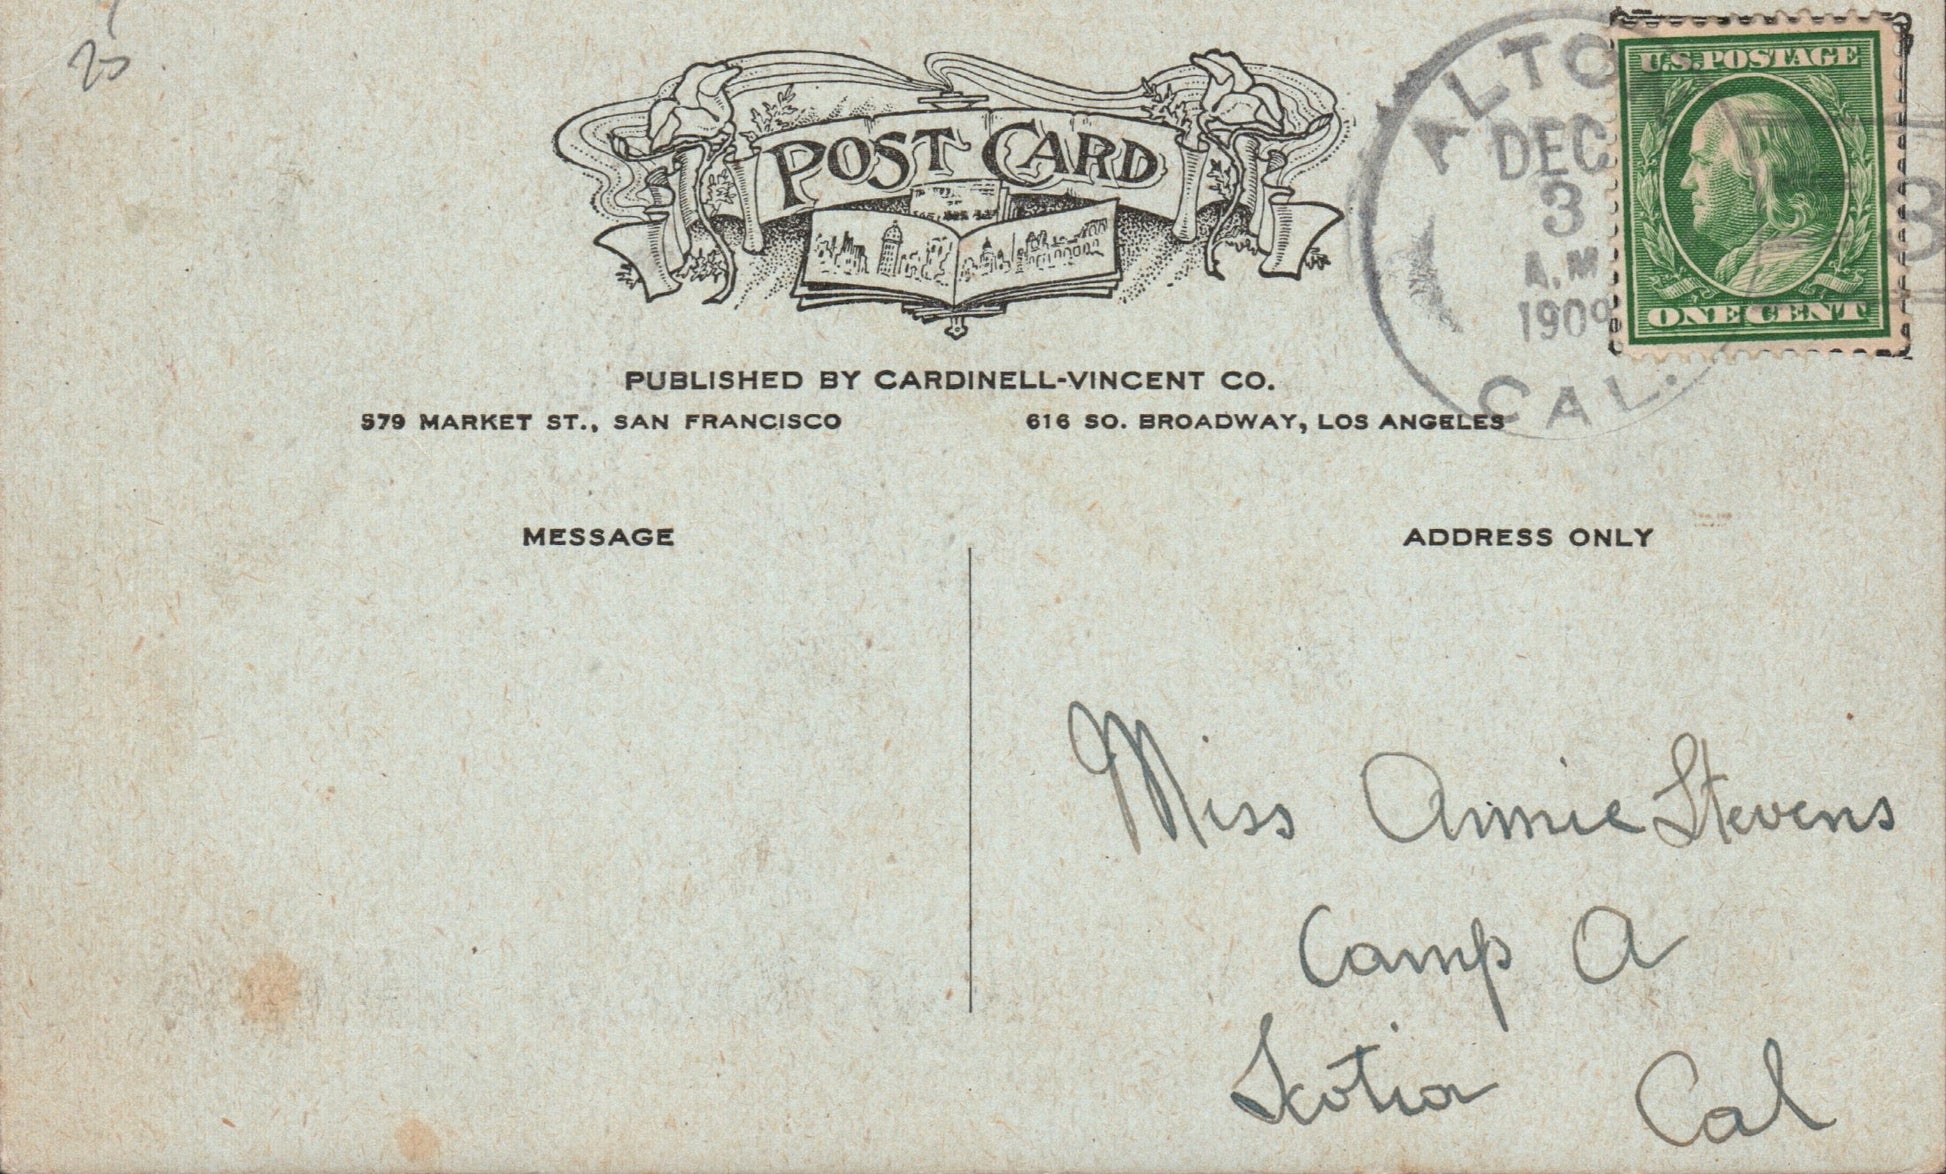 25
POST CARD
ALTON
DEC
3
A.M.
1909
CAL.
U.S. POSTAGE
ONE CENT
3
PUBLISHED BY CARDINELL-VINCENT CO.
579 MARKET ST., SAN FRANCISCO 616 SO. BROADWAY, LOS ANGELES
MESSAGE ADDRESS ONLY
Miss Annie Stevens
Camp A
Scotia Cal